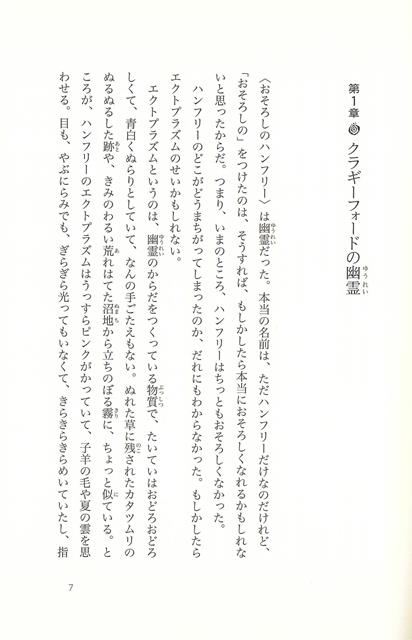 第1章 クラギーフォードの幽霊
〈おそろしのハンフリー〉は幽霊だった。本当の名前は、ただハンフリーだけなのだけれど、
「おそろしの」をつけたのは、そうすれば、もしかしたら本当におそろしくなれるかもしれな
いと思ったからだ。つまり、いまのところ、ハンフリーはちっともおそろしくなかった。
ハンフリーのどこがどうまちがってしまったのか、だれにもわからなかった。もしかしたら
エクトプラズムのせいかもしれない。
エクトプラズムというのは、幽霊のからだをつくっている物質で、たいていはおどろおどろ
しくて、青白くぬらりとしていて、なんの手ごたえもない。ぬれた草に残されたカタツムリの
ぬるぬるした跡や、きみのわるい荒れはてた沼地から立ちのぼる霧に、ちょっと似ている。と
ころが、ハンフリーのエクトプラズムはうっすらピンクがかっていて、子羊の毛や夏の雲を思
わせる。目も、やぶにらみでも、ぎらぎら光ってもいなくて、きらきらきらめいていたし、指
7